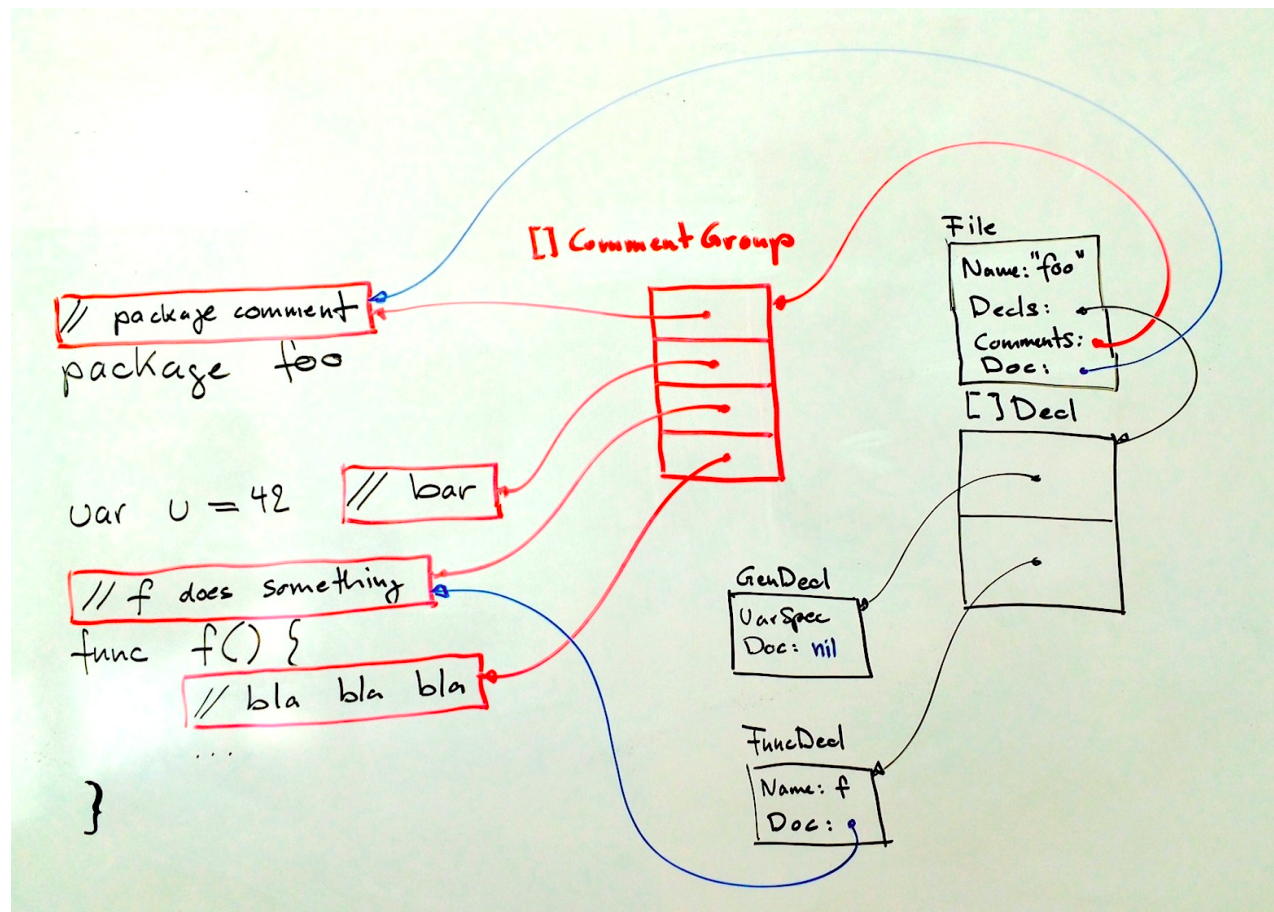 // package comment
package foo
var v = 42 // bar
// f does something
func f() {
// bla bla bla
...
}
[] CommentGroup
File
Name: "foo"
Decls:
Comments:
Doc:
[] Decl
GenDecl
VarSpec
Doc: nil
FuncDecl
Name: f
Doc: